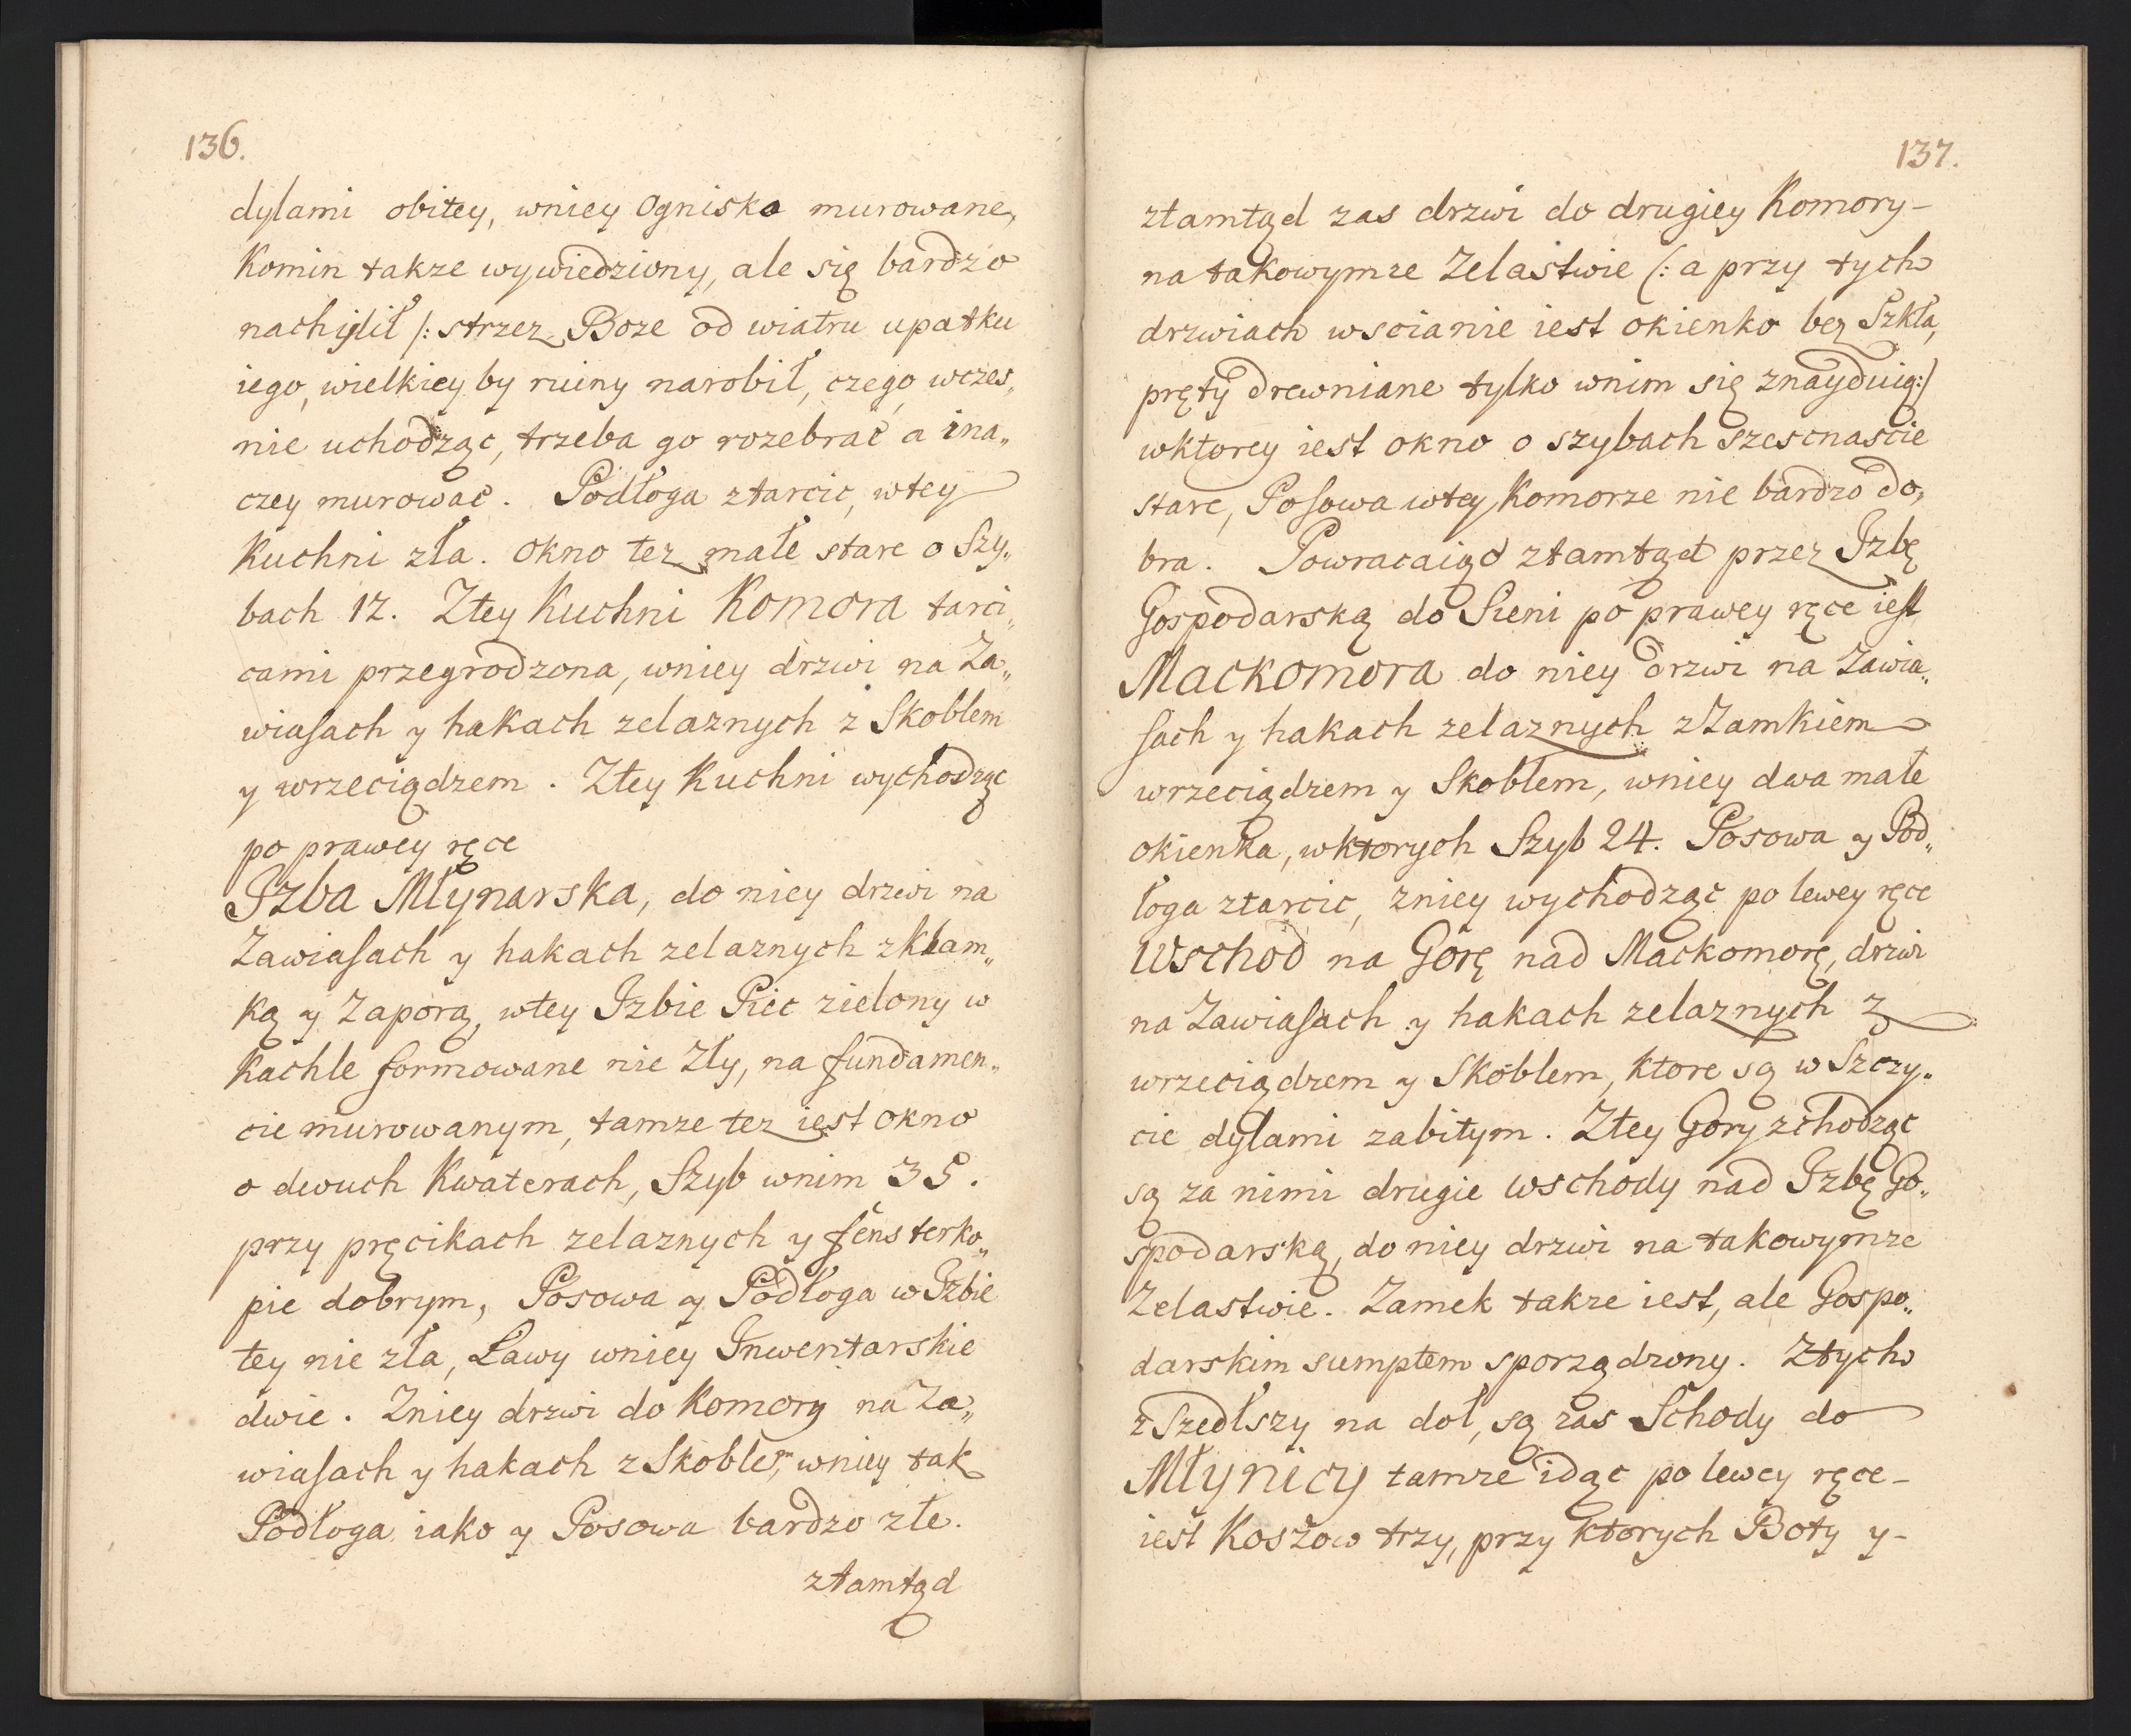 136.
dylami obitey, wniey Ognisko murowane,
Komin takze wywiedziony, ale się bardzo
nachylił /: strzez Boze od wiatru upatku
iego, wielkiey by ruiny narobił, czego wczes„
nie uchodząc, trzeba go rozebrać a ina„
czey murować. Podłoga ztarcic, wtey
Kuchni zła. Okno tez małe stare o Szy„
bach 12. Ztey Kuchni Komora tarci„
cami przegrodzona, wniey drzwi na Za„
wiasach y hakach zelaznych z Skoblem
y wrzeciądzem. Ztey Kuchni wychodząc
po prawey ręce
Izba Młynarska, do niey drzwi na
Zawiasach y hakach zelaznych zKlam„
ką y Zaporą, wtey Izbie Piec zielony w
Kachle formowane nie Zły, na fundamen„
cie murowanym, tamze tez iest okno
o dwuch Kwaterach, Szyb wnim 35.
przy pręcikach zelaznych y fensterko„
pie dobrym, Posowa y Podłoga w Izbie
tey nie zła, Ławy wniey Inwentarskie
dwie. Zniey drzwi do Komory na Za„
wiasach y hakach z Skoblem, wniey tak
Podłoga iako y Posowa bardzo złe.
ztamtąd
137.
ztamtąd zas drzwi do drugiey Komory -
na takowymze Zelastwie (: a przy tych
drzwiach wscianie iest okienko bez Szkła,
pręty drewniane tylko wnim się znayduią :)
wktorey iest okno o szybach szescnascie
stare, Posowa wtey Komorze nie bardzo do„
bra. Powracaiąc ztamtąd przez Izbę
Gospodarską do Sieni po prawey ręce iest
Mackomora do niey drzwi na Zawia„
sach y hakach zelaznych zZamkiem
wrzeciądzem y Skoblem, wniey dwa małe
okienka, wktorych Szyb 24. Posowa y Pod„
łoga ztarcic, zniey wychodząc po lewey ręce
Wschod na Gorę nad Mackomorę, drzwi
na Zawiasach y hakach zelaznych z
wrzeciądzem y Skoblem, ktore są w Szczy„
cie dylami zabitym. Ztey Gory zchodząc
są za nimi drugie wschody nad Izbę Go„
spodarską, do niey drzwi na takowymze
Zelastwie. Zamek takze iest, ale Gospo„
darskim sumptem sporządzony. Ztych
zSzedłszy na doł, są zas Schody do
Młynicy tamze idąc po lewey ręce -
iest Koszow trzy, przy ktorych Boty y -